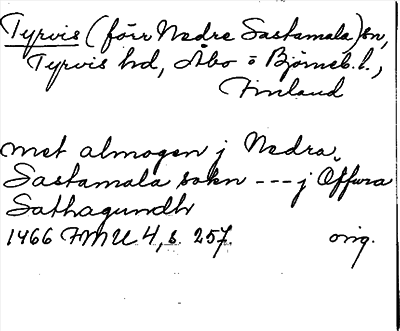 Tyrvis (förr Nedre Sastamala) sn,
Tyrvis hd, Åbo o Björneb. l.,
Finland
met almogen j Nedra
Sastamala sokn --- j Öffwra
Sathagundh
1466 FMU 4, s. 257. orig.